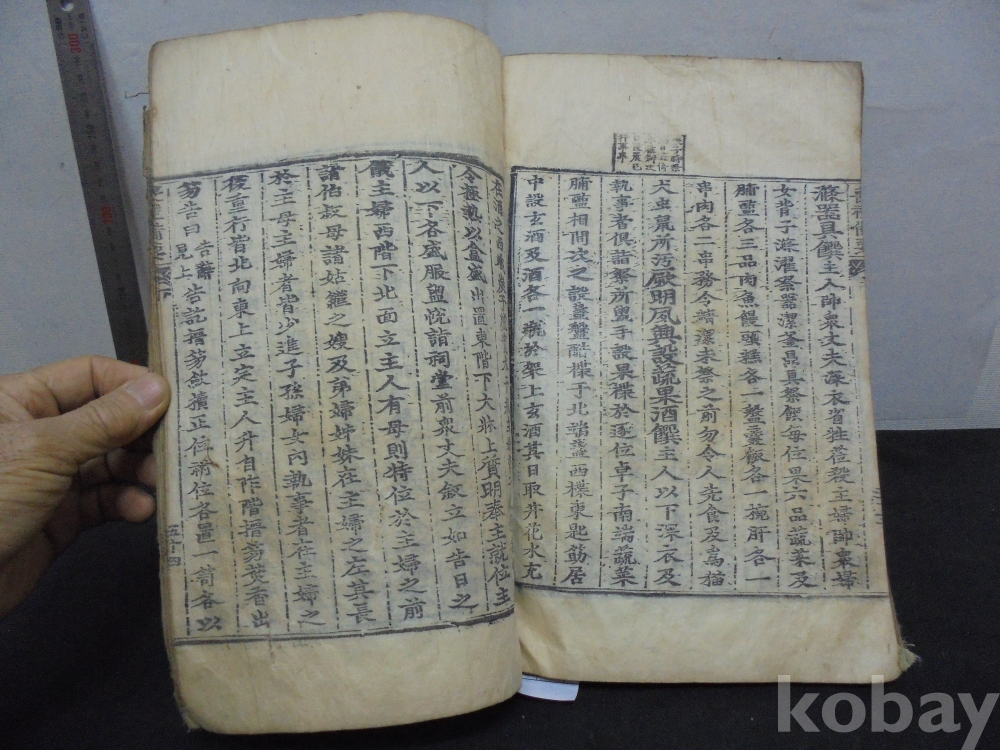 滌器具饌主人帥衆丈夫深衣省牲莅殺主婦帥衆婦
女背子滌濯祭器潔釜鼎具祭饌每位果六品蔬菜及
脯醢各三品肉魚饅頭糕各一盤羹飯各一椀肝各一
串肉各二串務令精潔未祭之前勿令人先食及爲猫
犬虫鼠所汚厥明夙興設蔬果酒饌主人以下深衣及
執事者俱詣祭所盥手設果楪於逐位卓子南端蔬菜
脯醢相間次之設盞盤醋楪于北端盞西楪東匙筯居
中設玄酒及酒各一瓶於架上玄酒其日取井花水充
在酒之西
令極熱以盒盛出置東階下大牀上質明奉主就位主
人以下各盛服盥帨詣祠堂前衆丈夫叙立如告日之
儀主婦西階下北面立主人有母則特位於主婦之前
諸伯叔母諸姑繼之嫂及弟婦姊妹在主婦之左其長
於主母主婦者皆少進子孫婦女內執事者在主婦之
後重行皆北向東上立定主人升自阼階搢笏焚香出
笏告曰告辭見上告訖搢笏斂櫝正位祔位各置一笥各以
五十四
kobay